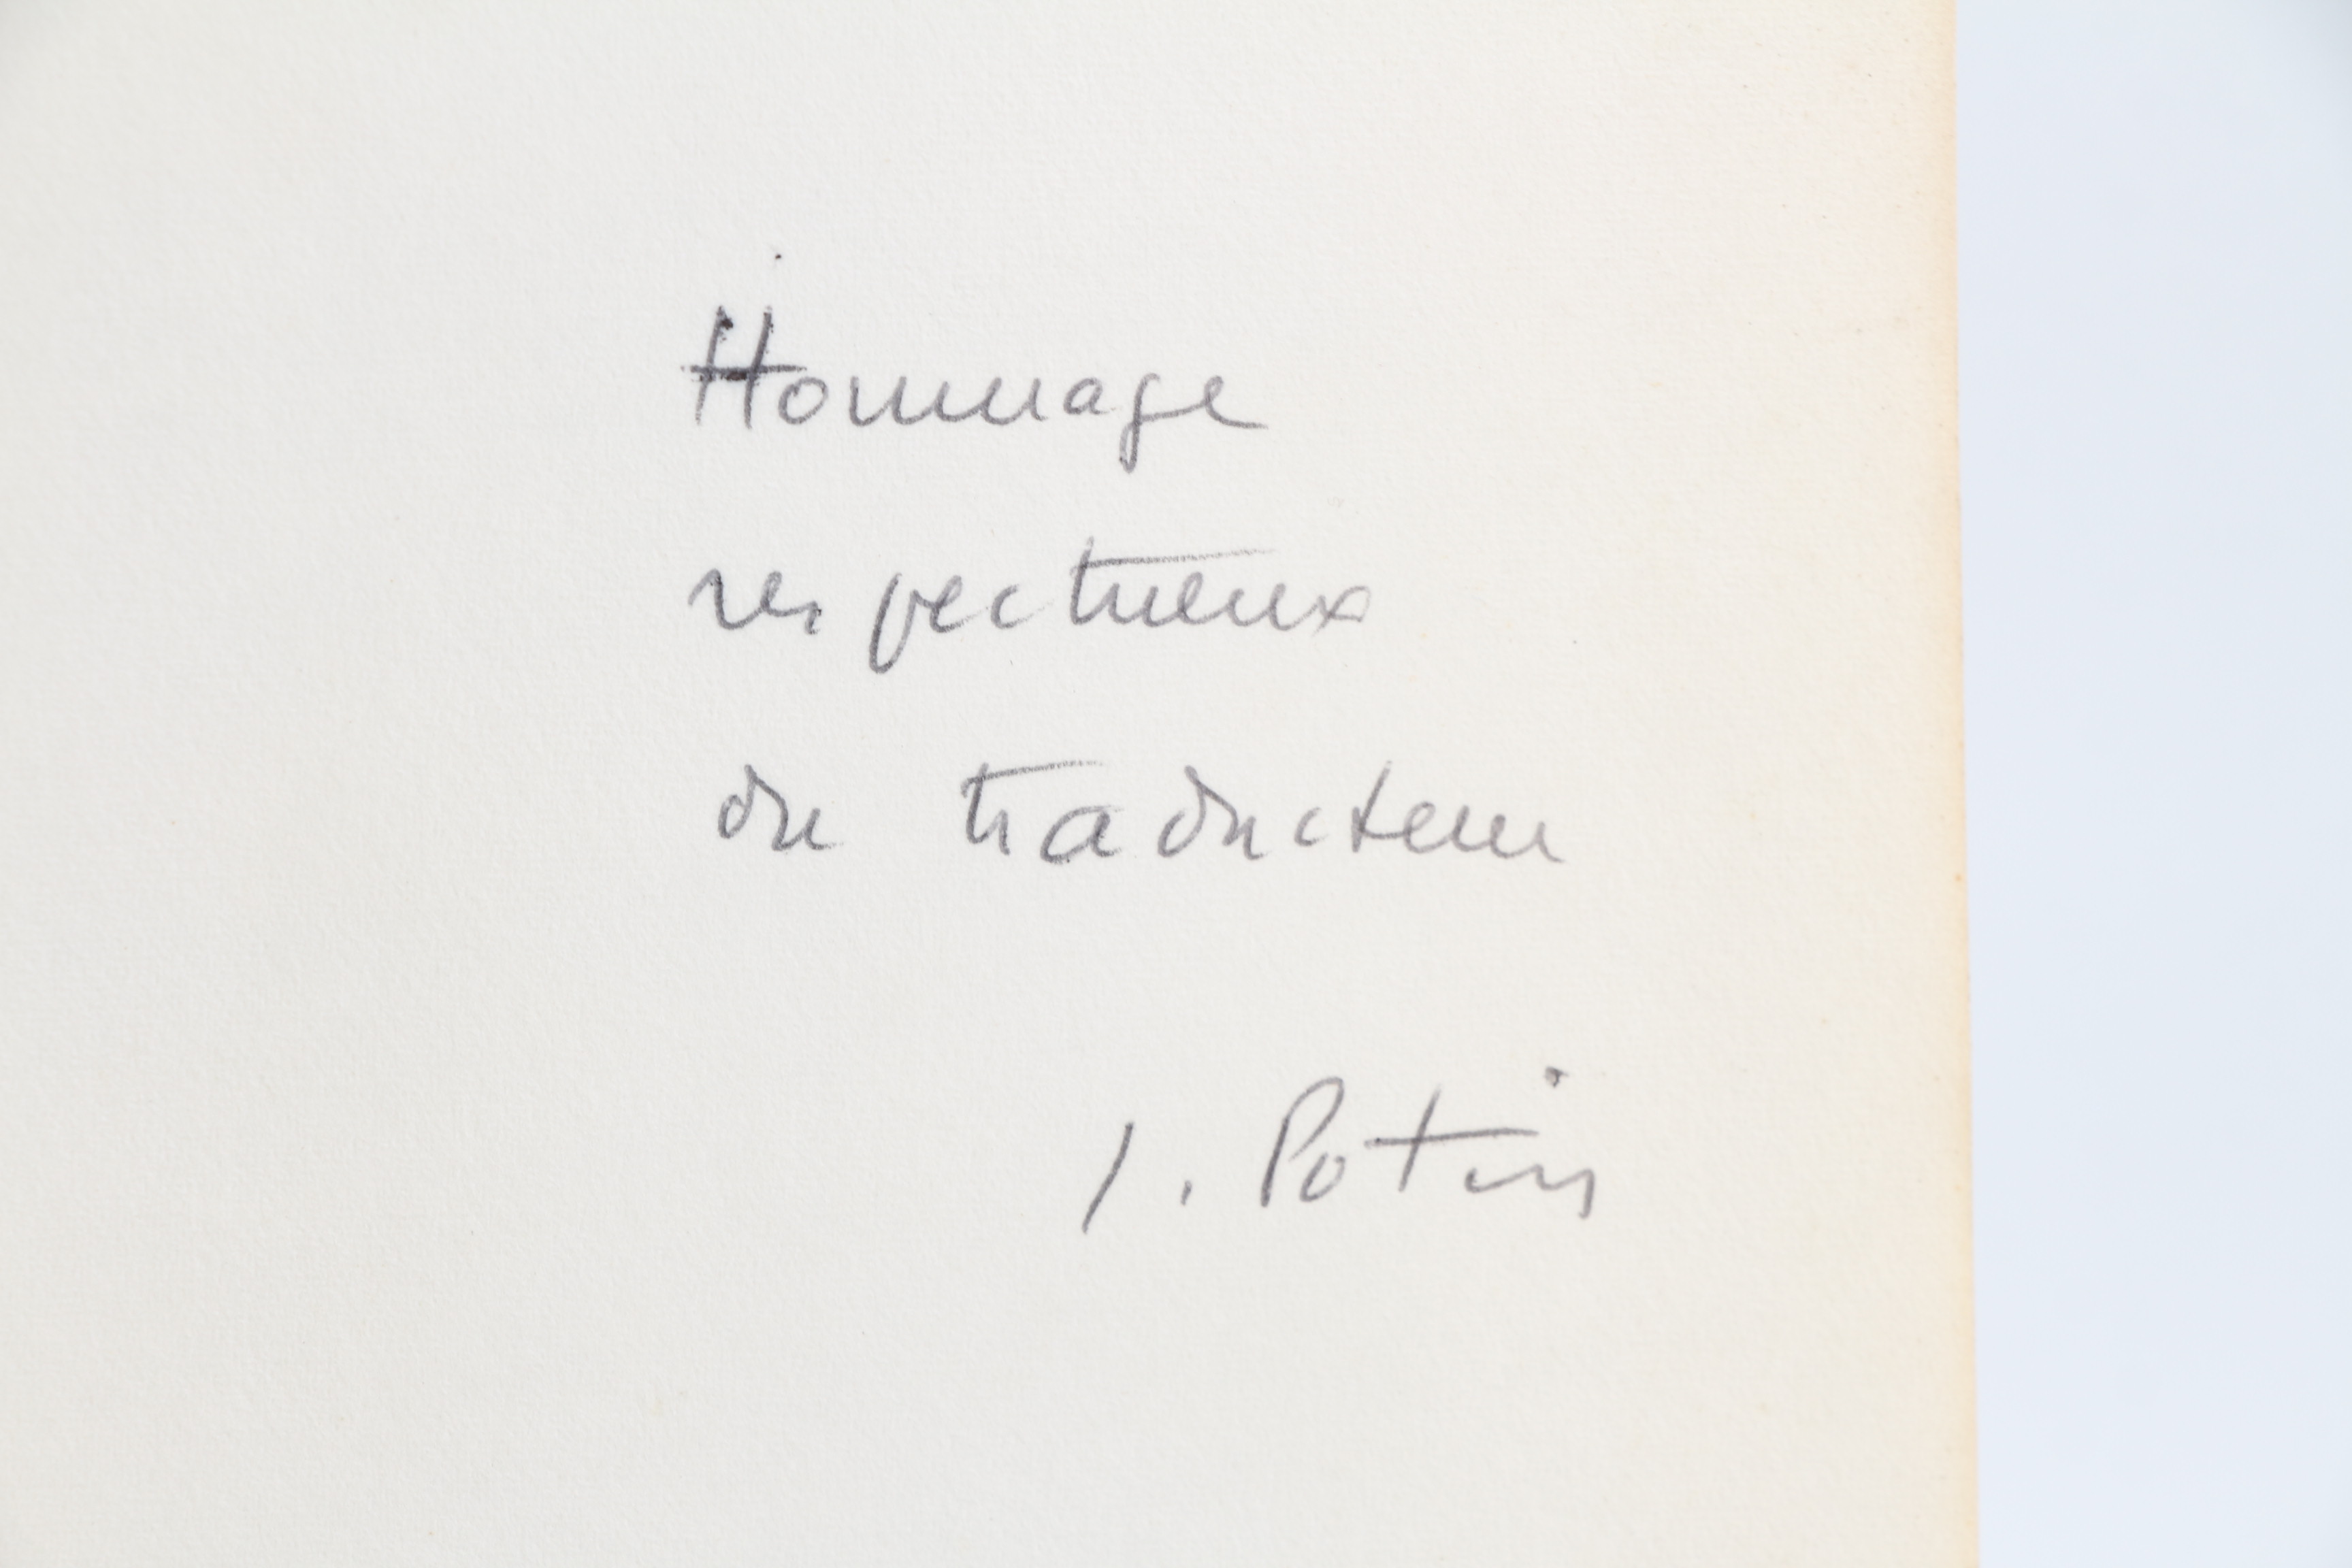 Hommage
respectueux
du traducteur
J. Potin